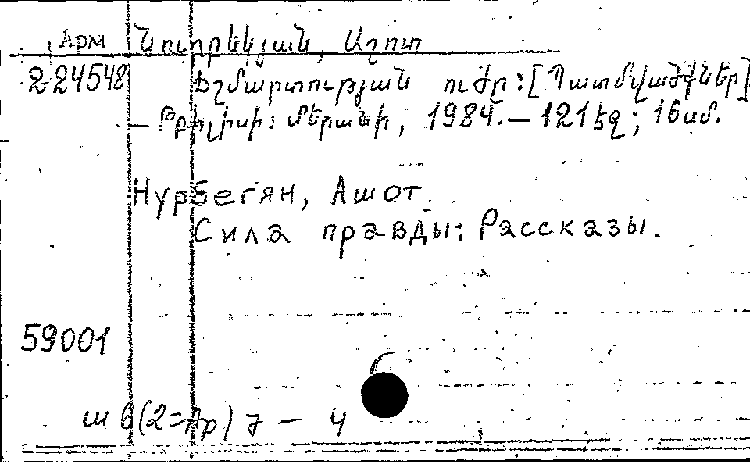 Арм Նուրբեկյան, Աշոտ
224548 Ճշմարտության ուժը: [Պատմվածքներ]
— Թբիլիսի: Մերանի, 1984. — 121 էջ; 16 սմ.
Нурбегян, Ашот
Сила правды: Рассказы.
59001
ш6(2=Ар)7 — 4